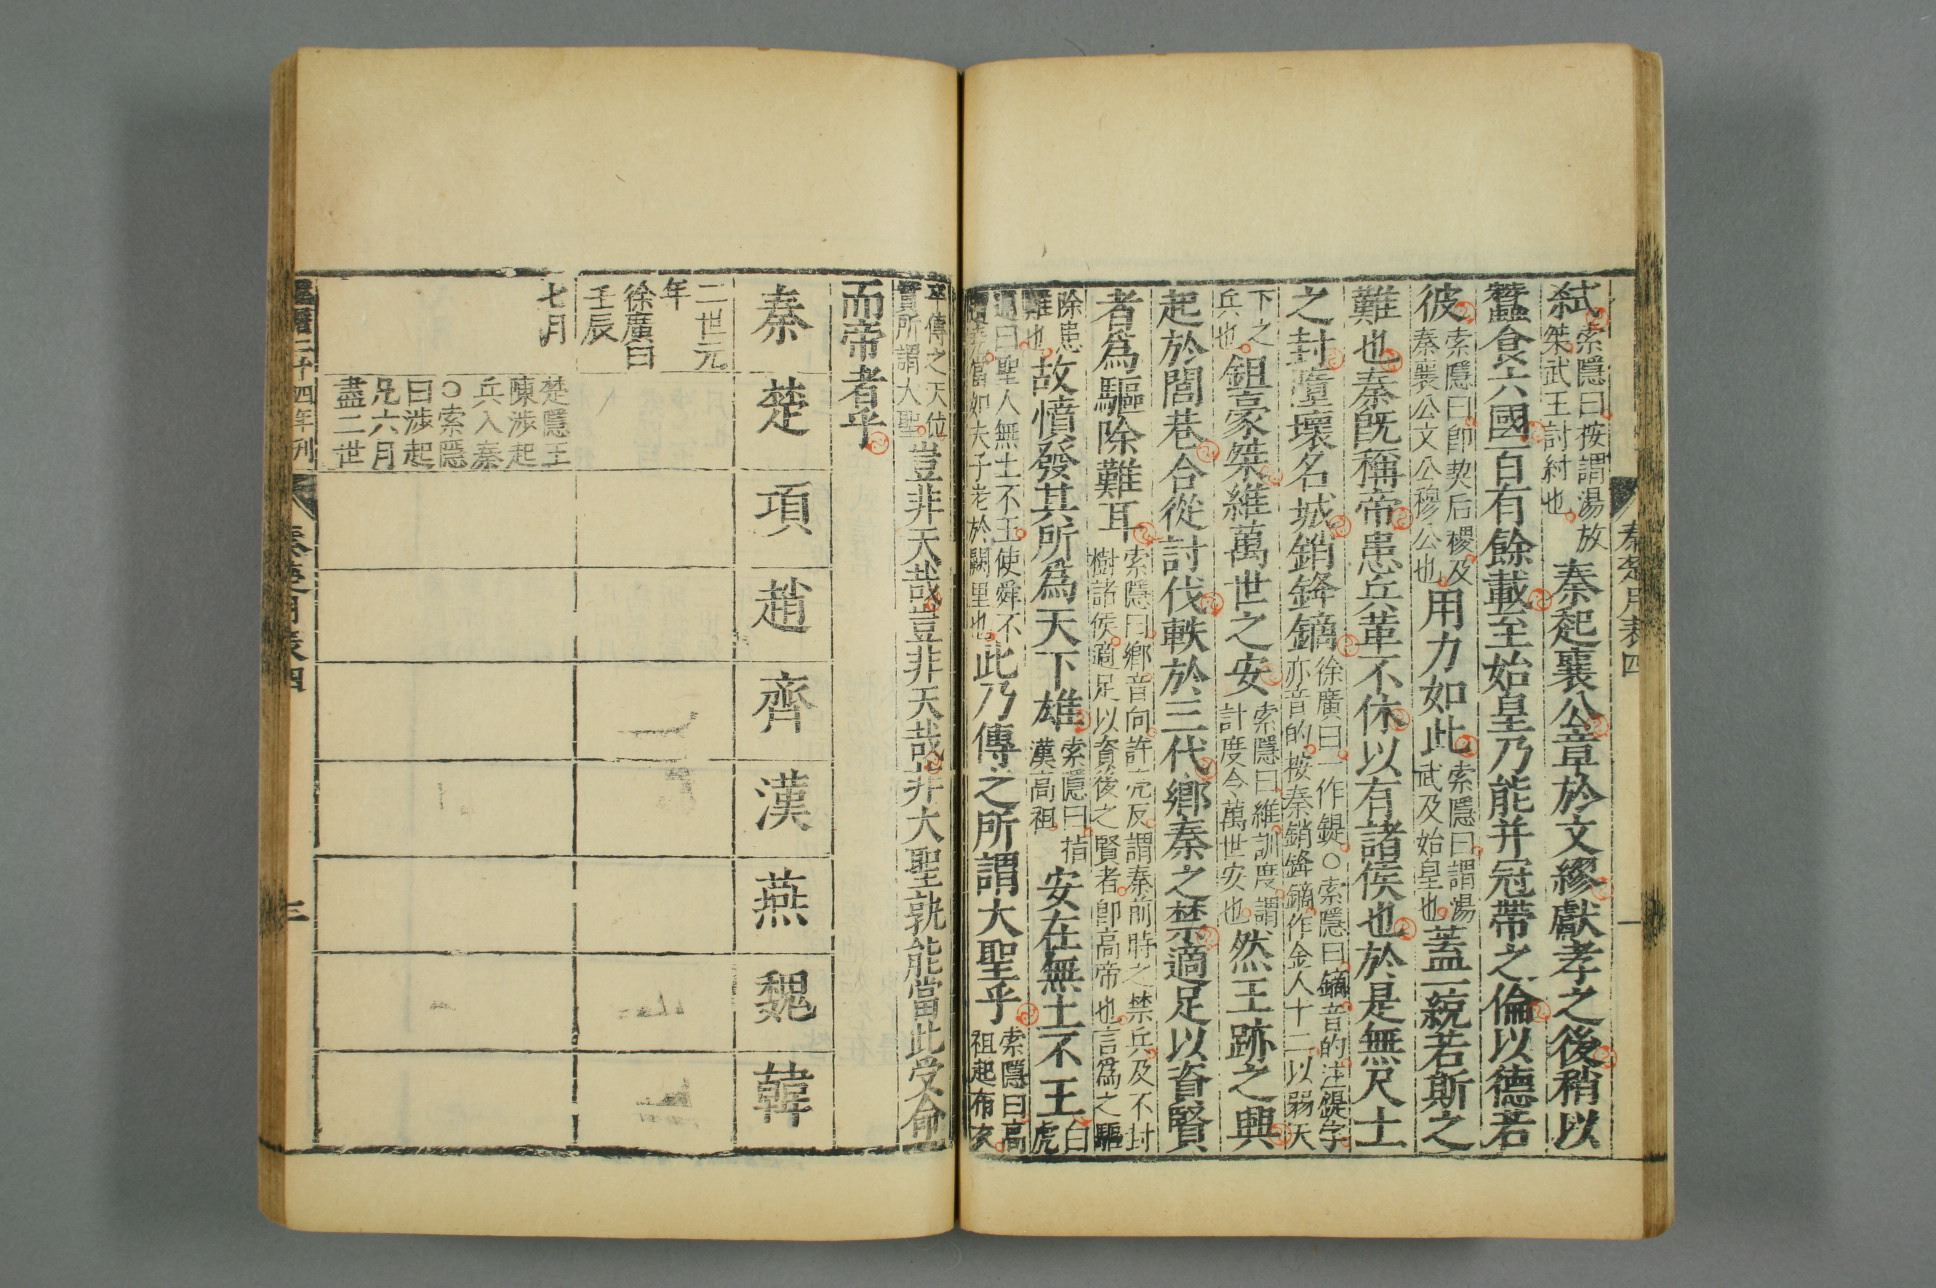 秦楚月表四
弑索隱曰按謂湯放桀武王討紂也秦起襄公章於文繆獻孝之後稍以
蠶食六國百有餘載至始皇乃能并冠帶之倫以德若
彼索隱曰即契后稷及秦襄公文公穆公也用力如此索隱曰謂湯武及始皇也蓋一統若斯之
難也秦旣稱帝患兵革不休以有諸侯也於是無尺土
之封墮壞名城銷鋒鏑徐廣曰一作鍉○索隱曰鏑音的注鍉字亦音的按秦銷鋒鏑作金人十二以弱天
下之兵也鉏豪桀維萬世之安索隱曰維訓度謂計度令萬世安也然王跡之興
起於閭巷合從討伐軼於三代鄉秦之禁適足以資賢
者爲驅除難耳索隱曰鄉音向許亮反謂秦前時之禁兵及不封樹諸侯適足以資後之賢者即高帝也言爲之驅
除患難也故憤發其所爲天下雄索隱曰指漢高祖安在無土不王白虎
通曰聖人無土不王使舜不遭堯當如夫子老於闕里也此乃傳之所謂大聖乎索隱曰高祖起布衣
卒傳之天位實所謂大聖豈非天哉豈非天哉非大聖孰能當此受命
而帝者乎
秦 楚 項 趙 齊 漢 燕 魏 韓
二世元年
徐廣曰
壬辰
七月
楚隱王
陳涉起
兵入秦
○索隱
曰涉起
兄六月
盡二世
二十四年刊
秦楚月表四
三